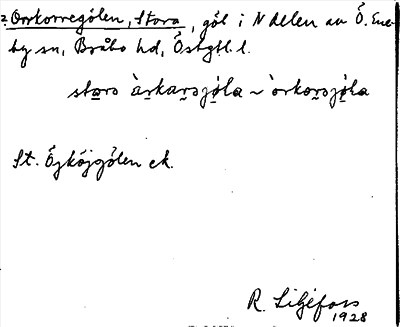 2 Orrkorregölen, Stora, göl i N delen av Ö. Ene-
by sn, Bråbo hd, Östgtl. l.
stors àrkarsjøla ~ òrkorsjøla
St. Öjköjgölen ek.
R. Liljefors
1928